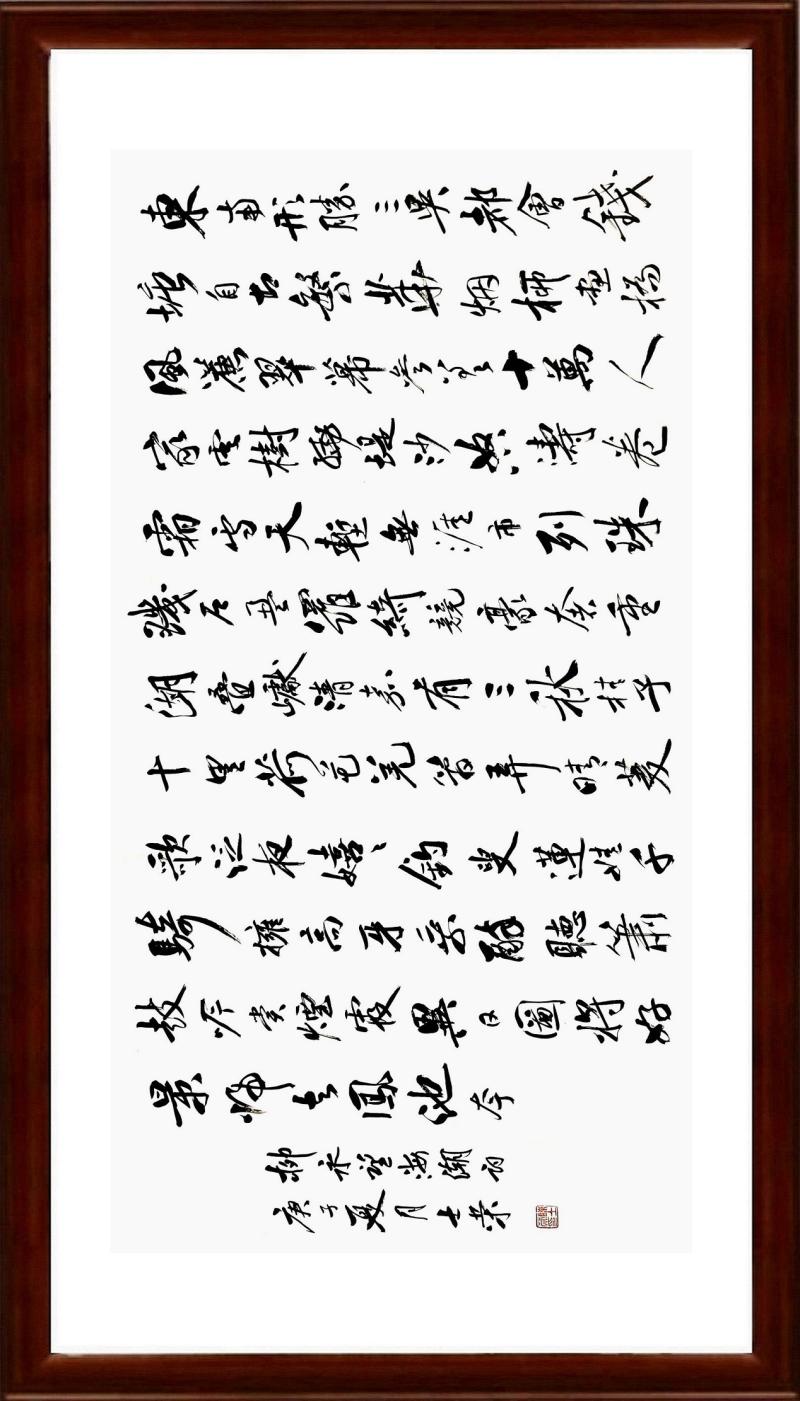 東南形勝三吳都會錢
塘自古繁華烟柳畫橋
風簾翠幕參差十萬人
家雲樹繞堤沙怒濤卷
霜雪天塹無涯市列珠
璣户盈羅綺競豪奢重
湖疊巘清嘉有三秋桂子
十里荷花羌管弄晴菱
歌泛夜嬉〻釣叟蓮娃千
騎擁高牙乘醉聽簫
鼓吟賞煙霞異日圖將好
景歸去鳳池夸
柳永望海潮詞
庚子夏月士榮